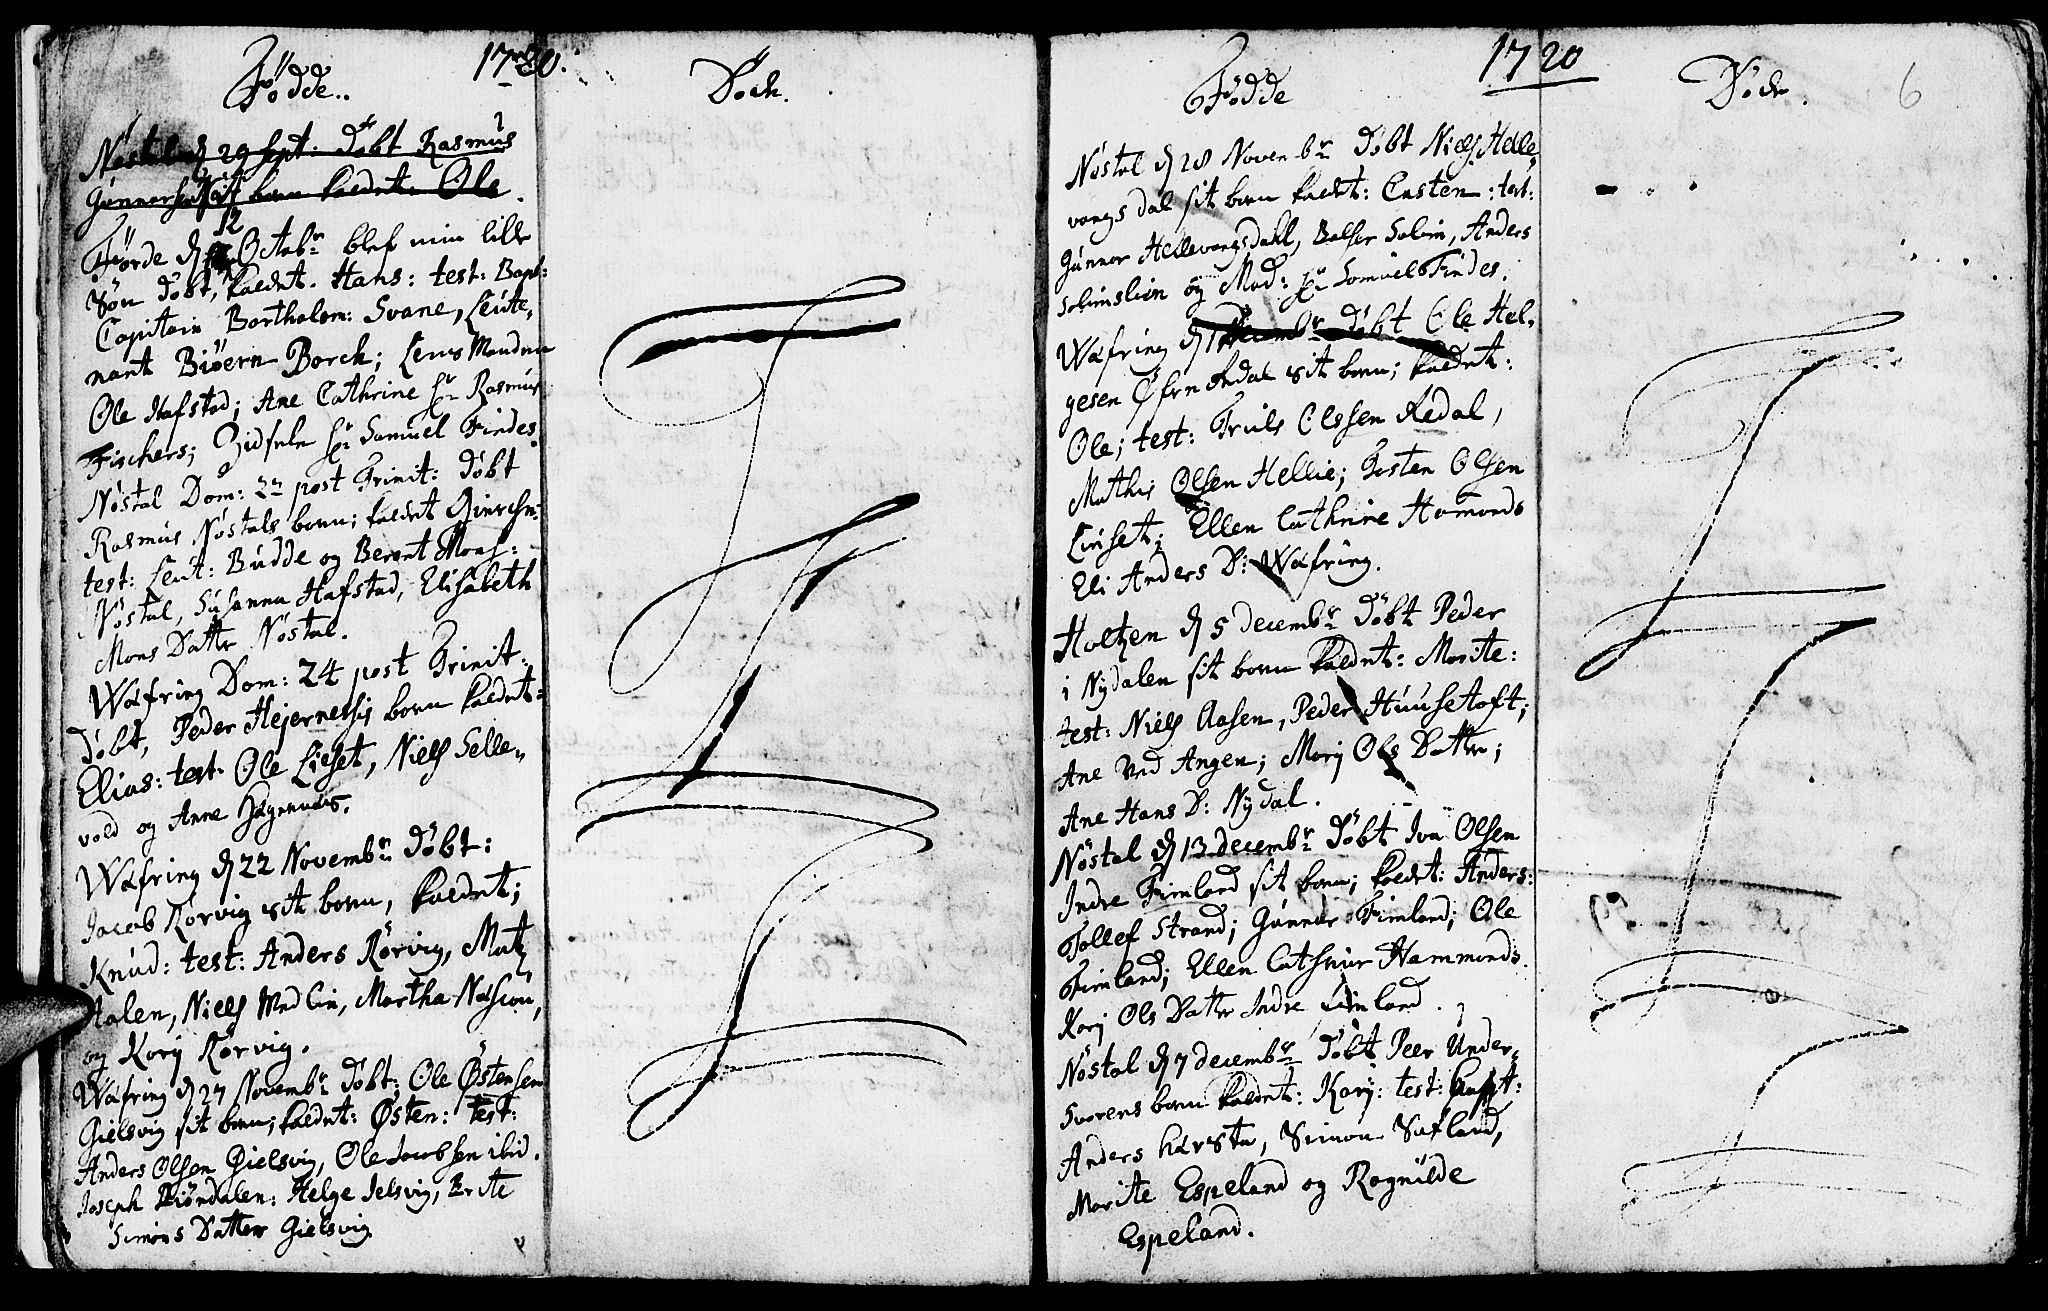 1720.
Födde..
Döde.
Nöstal d 29 Sept: Döbt Rasmus
Gunnersen sit barn kaldet: Ole.
12
Förde d Octobr blef min lille
Sön döbt, kaldet. Hans: test: Bapt:
Capitain Bartholom: Svane, Leute,
nant Biöern Borch; Lens
Ole Hafstad; Ane Cathrine Sr Rasmus
Fischers; Sr Samuel Findes.
Nöstal Dom: 22 post Trinit: döbt
Rasmus Nöstals barn; kaldet
test: Leut: Budde og Berent Mons:
Nöstal, Susanna Hafstad, Elisabeth
Mons Datter Nöstal.
Wafring Dom: 24 post Trinit:
döbt, Peder barn kaldet:
Elias: test: Ole Lieset, Niels Selle,,
vold og Anne
Wafring d 22 Novembr Döbt:
Jacob Rörvig sit barn, kaldet;
Knud: test: Anders Rörvig, Matz
Halen, Niels Martha
og Kari Rörvig.
Wafring d 27 Novembr Döbt: Ole Östensen
Gielsvig sit barn; kaldet: Östen: test:
Anders Olsen Gielsvig, Ole Jacobsen ibid.
Joseph Helge Jelsvig, Brite
Simons Datter Gielsvig
1720
Födde
Döde.
6
Nöstal d 28 Novembr Döbt Niels Helle,
vangs dal sit barn kaldet: Casten: test:
Gunnar Hellevangsdahl, Balser Solem, Anders
Solemslien og Mad: Sr Samuel Findes.
Wafring d 1 Decembr Döbt Ole Hel,
gesen Öfren Ardal sit barn; kaldet:
Ole; test: Truls Olssen Redal,
Mathis Olsen Hellie; Torsten Olsen
Lieset; Ellen Cathrine Hamonds
Eli Anders D: Wafring.
Holtzen d 5 decembr Döbt Peder
i Nydalen sit barn kaldet: Marite:
test: Niels Aasen, Peder Huusetoft;
Ane ved Angen; Mari Ols Datter;
Ane Hans D: Nydal.
Nöstal d 13 decembr Döbt Iver Olsen
Indre Fimland sit barn; kaldet: Anders:
Tollef Strand; Gunnar Fimland; Ole
Fimland; Ellen Cathrine Hammonds.
Kari Ols Datter Indre Fimland.
Nöstal d 7 decembr Döbt Peer Under,
Svorens barn kaldet: Kari: test:
Anders Harsta, Simon Safland,
Marite Espeland og Ragnilde
Espeland.